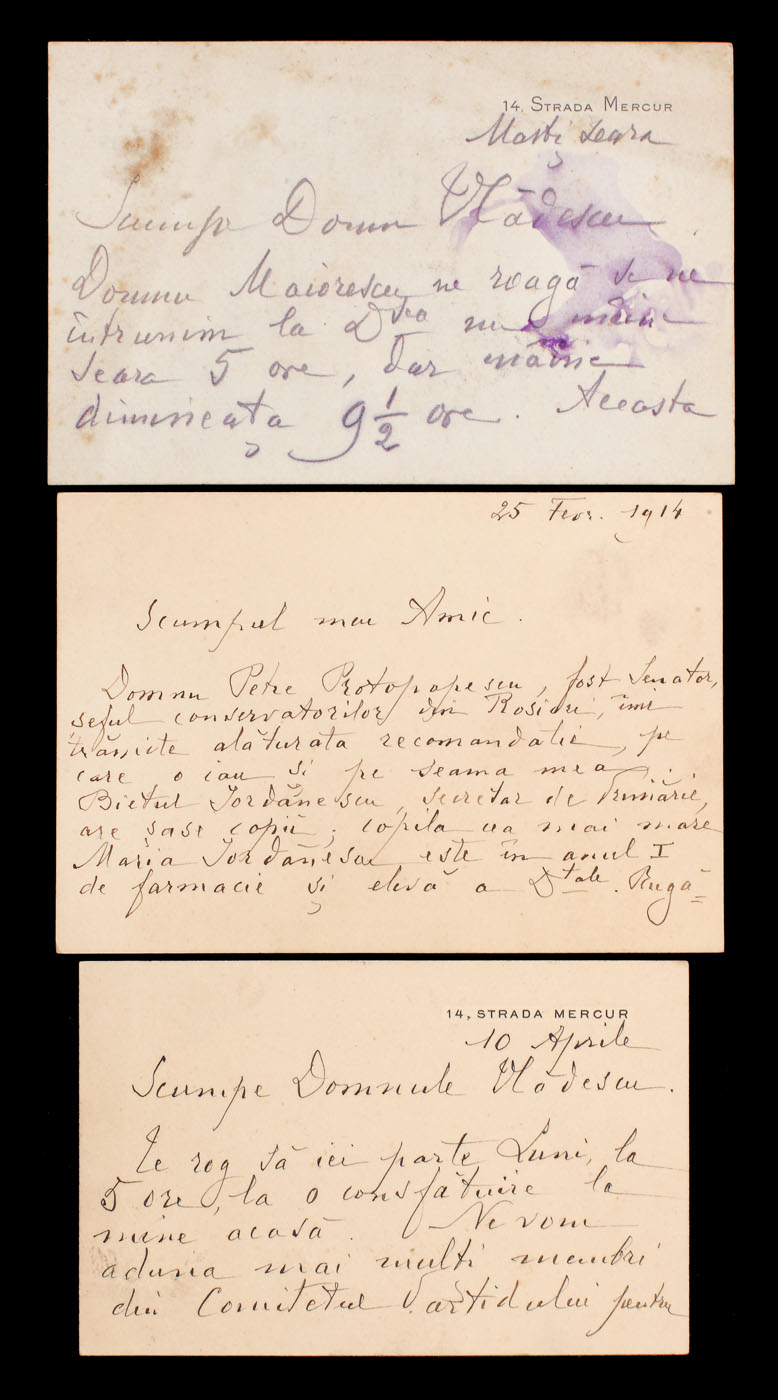 14, STRADA MERCUR
Marți seara
Scumpe Domn Vlădescu
Domnu Maiorescu ne roagă să ne
întrunim la D-sea nu mâine
seara 5 ore, dar mâine
dimineața 9 1/2 ore. Aceasta
25 Fevr. 1914
Scumpul meu Amic.
Domnu Petre Protopopescu, fost Senator,
șeful conservatorilor din Roșiori, îmi
trămite alăturata recomandație, pe
care o iau și pe seama mea.
Bietul Iordănescu, secretar de Primărie,
are șase copii; copila cea mai mare
Maria Iordănescu este în anul I
de farmacie și elevă a D-tale. Rugă=
14, STRADA MERCUR
10 Aprile
Scumpe Domnule Vlădescu.
Te rog să iei parte Luni, la
5 ore, la o consfătuire la
mine acasă. Ne vom
aduna mai mulți membri
din Comitetul Partidului pentru